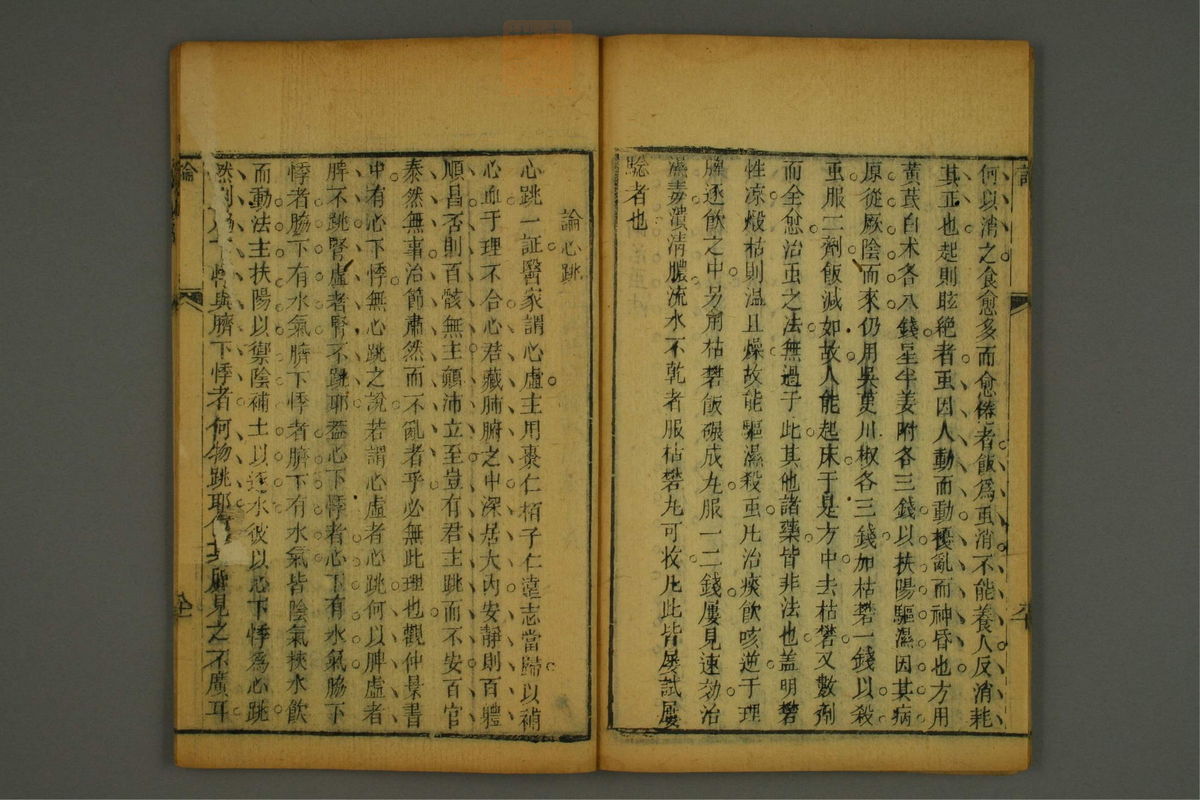 何以消之食愈多而愈倦者飯爲虫消不能養人反消耗
其正也起則眩絶者虫因人動而動擾亂而神昏也方用
黃茋白术各八錢星半姜附各三錢以扶陽驅濕因其病
原從厥陰而來仍用吳茰川椒各三錢加枯礬一錢以殺
虫服二劑飯減如故人能起床于是方中去枯礬又數劑
而全愈治虫之法無過于此其他諸藥皆非法也盖明礬
性凉煅枯則温且燥故能驅濕殺虫凡治痰飲咳逆于理
脾逐飲之中另用枯礬飯碾成丸服一二錢屢見速効治
濕毒潰清膿流水不乾者服枯礬丸可收凡此皆屡試屢
騐者也
論心跳
心跳一証醫家謂心虛主用棗仁栢子仁遠志當歸以補
心血于理不合心君藏腑腑之中深居大内安靜則百體
順昌否則百骸無主顛沛立至豈有君主跳而不安百官
泰然無事治節肅然而不亂者乎必無此理也觀仲景書
中有心下悸無心跳之說若謂心虛者心跳何以脾虛者
脾不跳腎虛者腎不跳耶葢心下悸者心下有水氣脇下
悸者脇下有水氣臍下悸者臍下有水氣皆陰氣挾水飲
而動法主扶陽以禦陰補土以逐水彼以心下悸爲心跳
然則脇下悸與臍下悸者何物跳耶 見之不廣耳
論